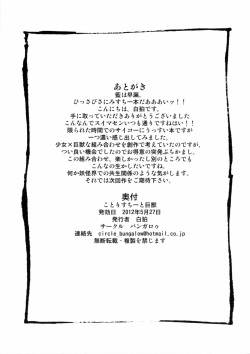 あとがき
藍は早漏。
ひっさびさにみすちー本だああああいッ！！
こんにちは、白狛です。
手に取っていただきありがとうございました
こんなんでスイマセンいつも通りですねはい！！
限られた時間でのサイコーにうっすい本ですが
一つ濃い感じ出してみました。
少女×巨獣な組み合わせを創作で考えていたのですが、
つい良い機会でしたのでお得意の突発ぶちかまし。
この組み合わせ、楽しかったし別のところでも
こんなの生かしたいですね。
何か妖怪界での共生関係のような気がします。
それでは次回作をご期待下さい。
奥付
ことりすちーと巨獣
発効日 2012年5月27日
発行者 白狛
サークル バンガロゥ
連絡先 circle_bungalow@hotmail.co.jp
無断転載・複製を禁じます